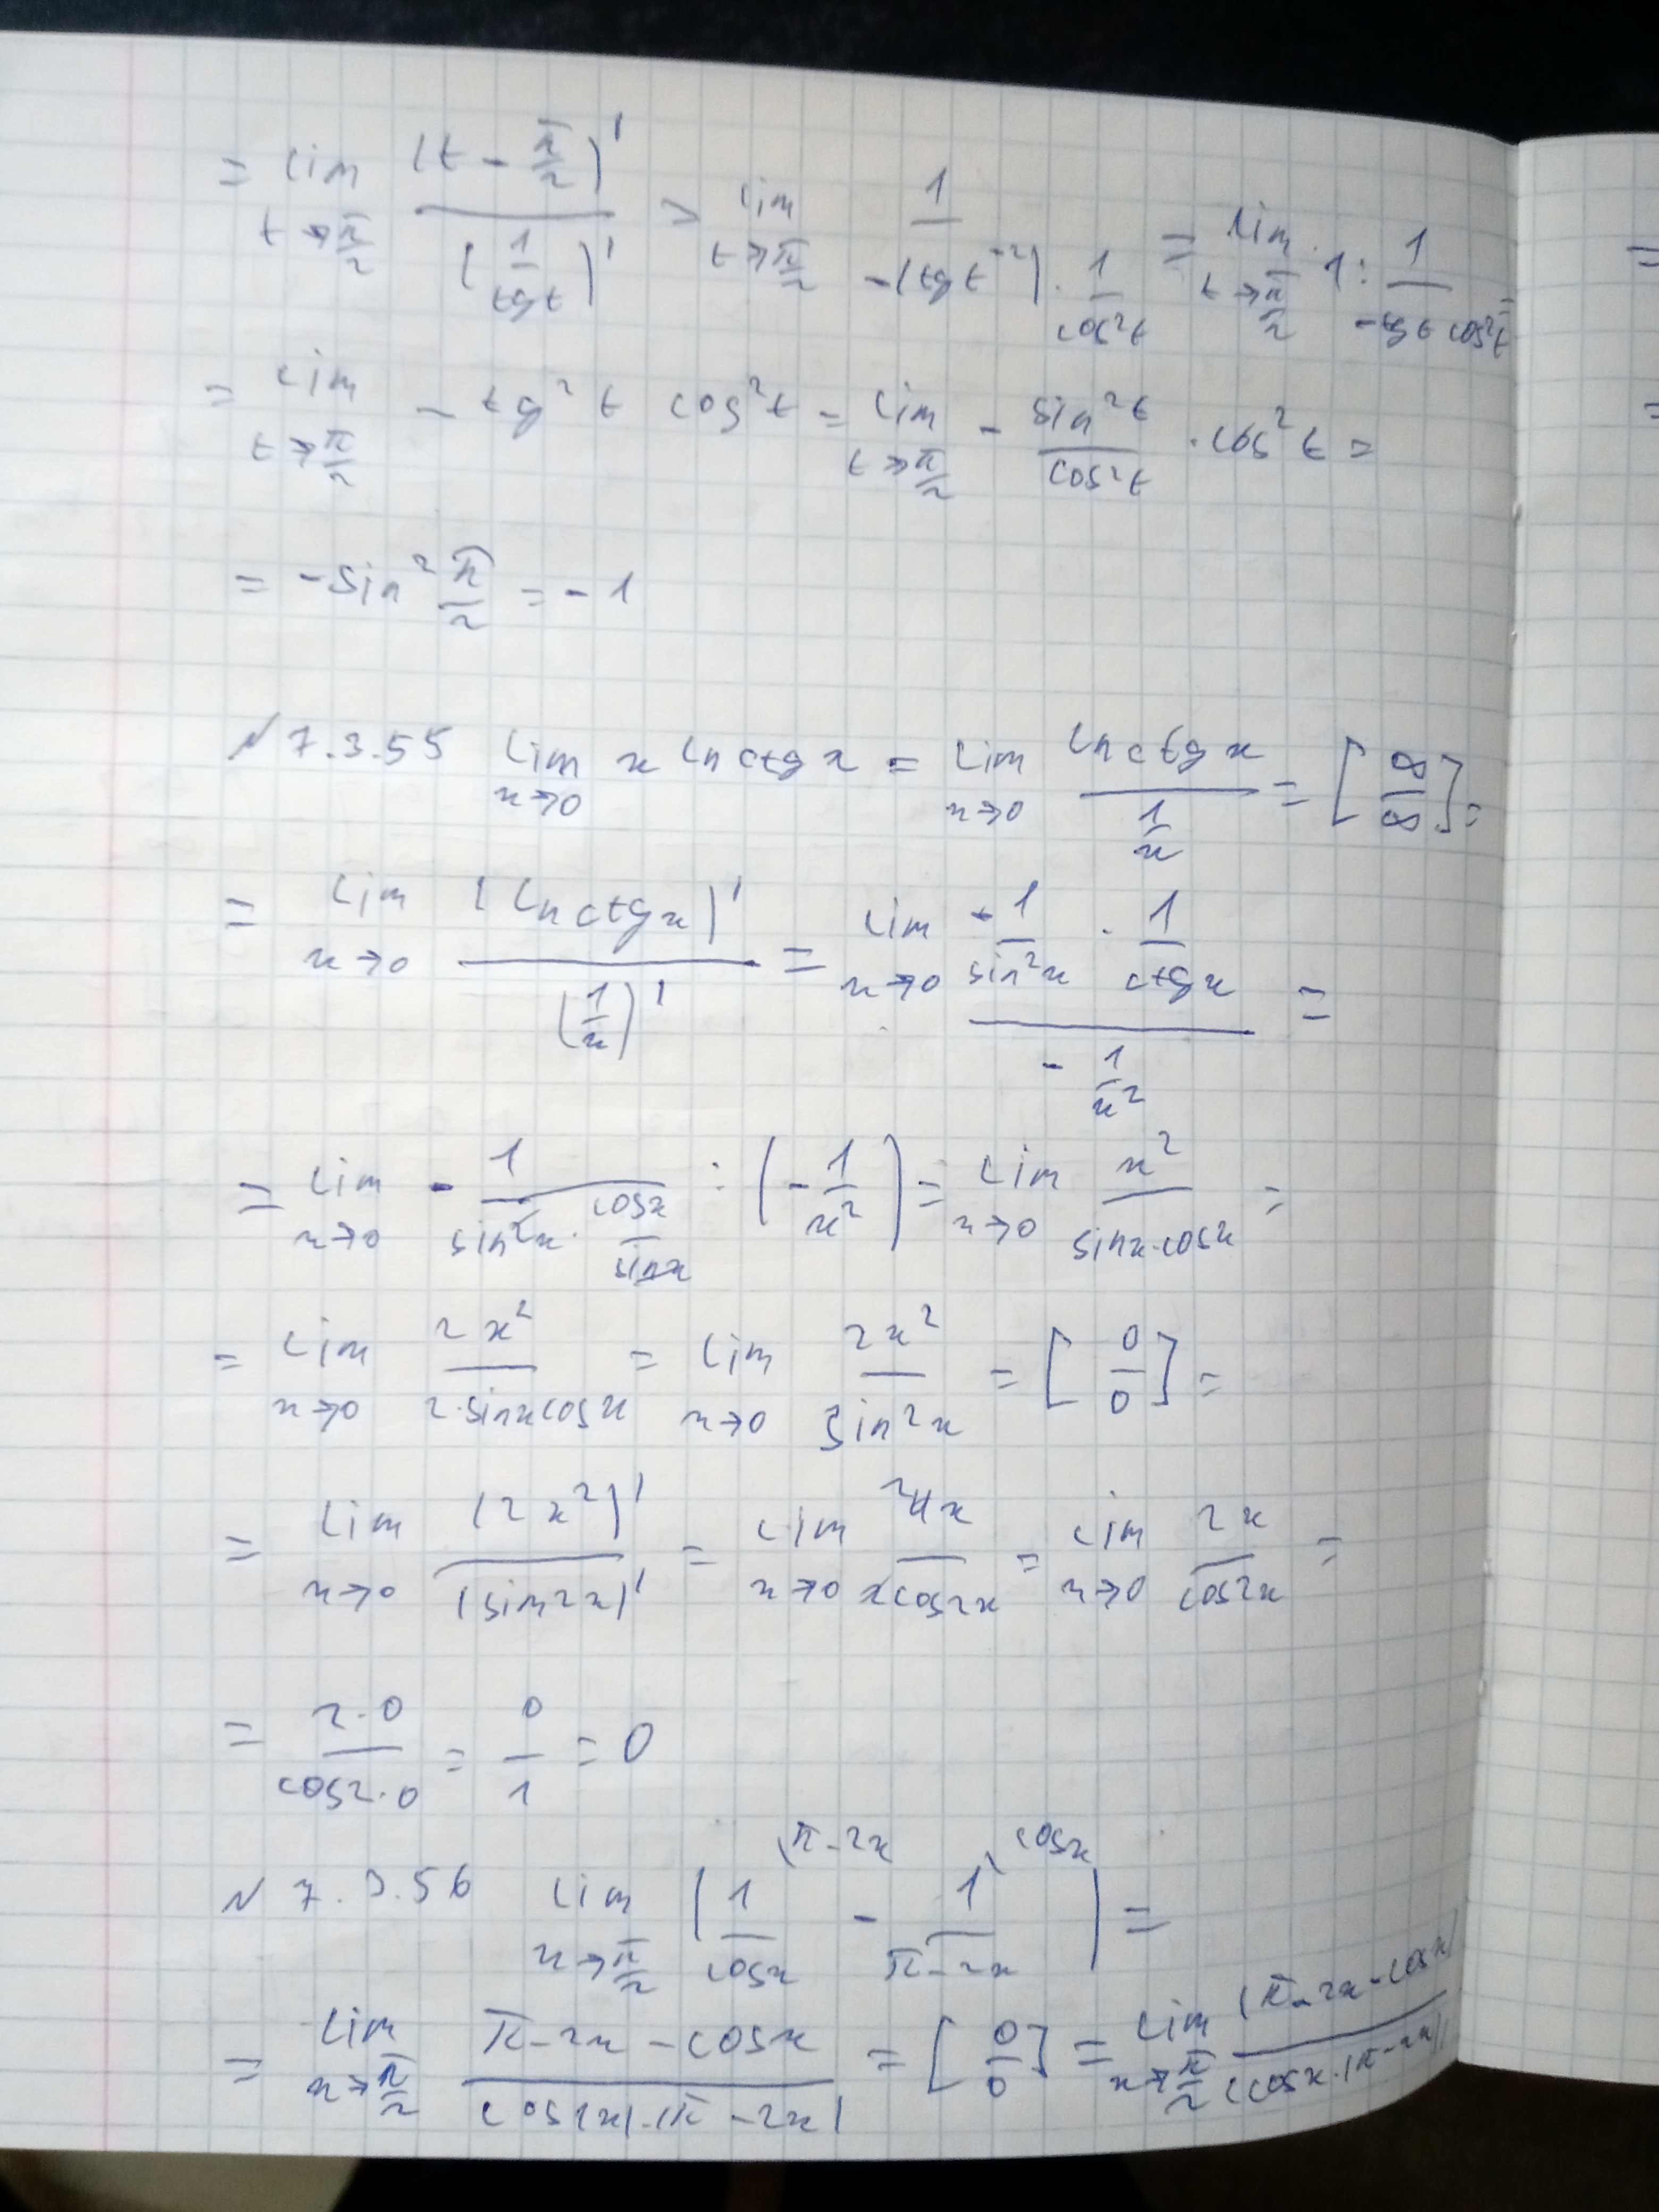 = lim t→π/2 (t - π/2)' / (1/tg t)' = lim t→π/2 1 / (-(tg t⁻²) · 1/cos²t) = lim t→π/2 1 : 1/(-tg t cos²t) =
= lim t→π/2 - tg²t cos²t = lim t→π/2 - sin²t/cos²t · cos²t =
= -sin² π/2 = -1
N 7.3.55 lim x→0 x ln ctg x = lim x→0 ln ctg x / (1/x) = [∞/∞] =
= lim x→0 (ln ctg x)' / (1/x)' = lim x→0 (-1/sin²x · 1/ctg x) / (-1/x²) =
= lim x→0 - 1/(sin²x · cosx/sinx) : (-1/x²) = lim x→0 x²/(sinx·cosx) =
= lim x→0 2x²/(2·sinxcosx) = lim x→0 2x²/sin2x = [0/0] =
= lim x→0 (2x²)'/(sin2x)' = lim x→0 4x/(2cos2x) = lim x→0 2x/cos2x =
= 2·0/cos2·0 = 0/1 = 0
N 7.3.56 lim x→π/2 (1\π-2x / cosx - 1\cosx / π-2x) =
= lim x→π/2 (π-2x-cosx) / (cos(x)·(π-2x)) = [0/0] = lim x→π/2 (π-2x-cosx)' / (cosx·(π-2x))'
=
=